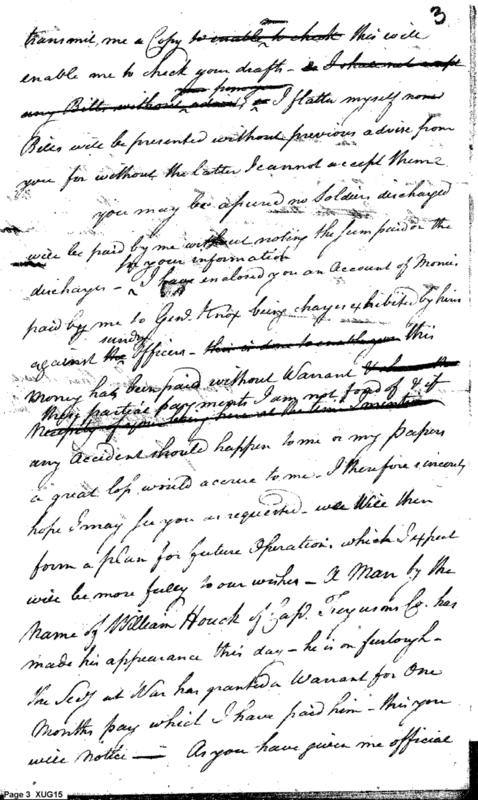 3
transmit me a Copy to enable me to check this will
enable me to check your drafts - I shall not accept
your
any Bills without advise I flatter myself none
Bills will be presented without previous advise from
you for without the latter I cannot accept them
you may be assured no Soldiers discharged
will be paid by me without noting the sum paid on the
for your information
discharges - I have enclosed you an Account of Monies
paid by me to Genl. Knox being charges exhibited by him
sundry
against the Officers - this is done to enable you this
money has been paid without Warrant
these partial payments I am not fond of & if
Necessity of your being here at the time I mention
any Accident should happen to me or my papers
a great loss would accrue to me - I therefore sincerely
hope I may see you as requested - we Will then
form a plan for future Operations which I expect
will be more fully to our wishes - A Man by the
Name of William Houck of Capt. Fergusons Co. has
made his appearance this day - he is on furlough -
The Secy at War has granted a Warrant for One
Months pay which I have paid him - this you
will notice - As you have given me official
Page 3 XUG15